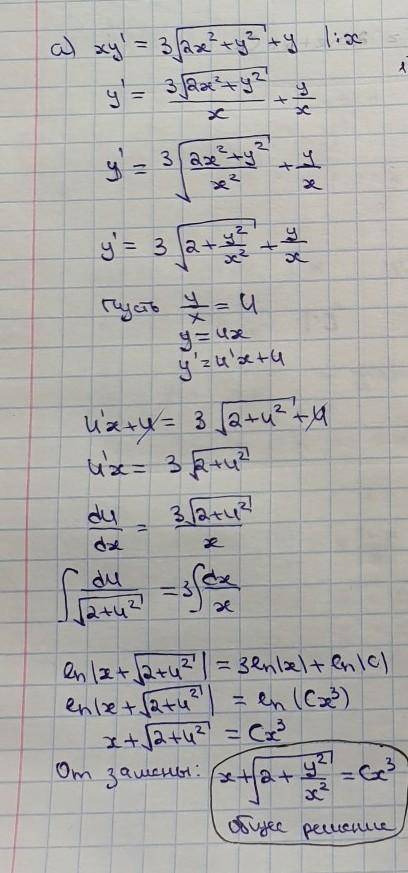 а) xy' = 3√(2x²+y²) + y |:x
y' = 3√(2x²+y²)/x + y/x
y' = 3√((2x²+y²)/x²) + y/x
y' = 3√(2 + y²/x²) + y/x
Пусть y/x = u
y = ux
y' = u'x + u
u'x + u = 3√(2+u²) + u
u'x = 3√(2+u²)
du/dx = 3√(2+u²)/x
∫ du/√(2+u²) = 3∫ dx/x
ln|x + √(2+u²)| = 3ln|x| + ln|C|
ln|x + √(2+u²)| = ln(Cx³)
x + √(2+u²) = Cx³
От замены: x + √(2 + y²/x²) = Cx³
общее решение